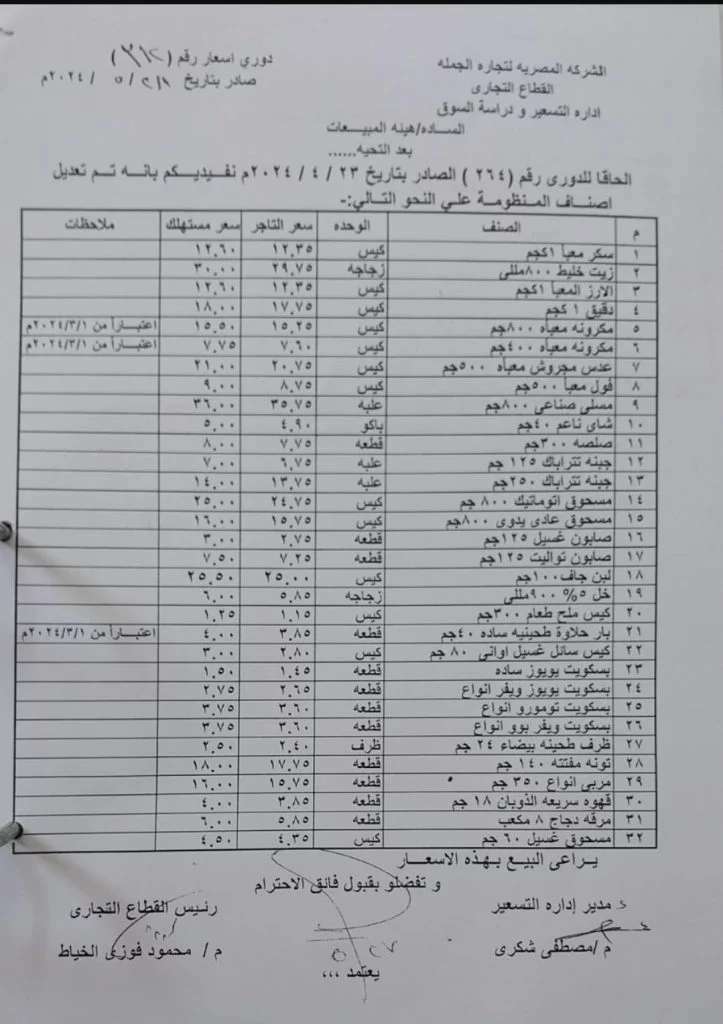 الشركه المصريه لتجاره الجمله
القطاع التجارى
اداره التسعير و دراسة السوق
دوري اسعار رقم (٣١٢)
صادر بتاريخ ٢٨/ ٥ / ٢٠٢٤م
الساده/هيئه المبيعات
بعد التحيه......
الحاقا للدورى رقم (٢٦٤ ) الصادر بتاريخ ٢٣ / ٤ / ٢٠٢٤م نفيديكم بانه تم تعديل
اصناف المنظومة علي النحو التالي:-
م الصنف الوحده سعر التاجر سعر مستهلك ملاحظات
١ سكر معبأ ١كجم كيس ١٢,٣٥ ١٢,٦٠
٢ زيت خليط ٨٠٠مللى زجاجه ٢٩,٧٥ ٣٠,٠٠
٣ الارز المعبأ ١كجم كيس ١٢,٣٥ ١٢,٦٠
٤ دقيق ١ كجم كيس ١٧,٧٥ ١٨,٠٠
٥ مكرونه معبأه ٨٠٠جم كيس ١٥,٢٥ ١٥,٥٠ اعتباراً من ٢٠٢٤/٣/١م
٦ مكرونه معبأه ٤٠٠جم كيس ٧,٦٠ ٧,٧٥ اعتباراً من ٢٠٢٤/٣/١م
٧ عدس مجروش معبأه ٥٠٠جم كيس ٢٠,٧٥ ٢١,٠٠
٨ فول معبأ ٥٠٠جم كيس ٨,٧٥ ٩,٠٠
٩ مسلى صناعى ٨٠٠جم علبه ٣٥,٧٥ ٣٦,٠٠
١٠ شاى ناعم ٤٠جم باكو ٤,٩٠ ٥,٠٠
١١ صلصه ٣٠٠جم قطعه ٧,٧٥ ٨,٠٠
١٢ جبنه تتراباك ١٢٥ جم علبه ٦,٧٥ ٧,٠٠
١٣ جبنه تتراباك ٢٥٠جم علبه ١٣,٧٥ ١٤,٠٠
١٤ مسحوق اتوماتيك ٨٠٠ جم كيس ٢٤,٧٥ ٢٥,٠٠
١٥ مسحوق عادى يدوى ٨٠٠جم كيس ١٥,٧٥ ١٦,٠٠
١٦ صابون غسيل ١٢٥جم قطعه ٢,٧٥ ٣,٠٠
١٧ صابون تواليت ١٢٥جم قطعه ٧,٢٥ ٧,٥٠
١٨ لبن جاف١٠٠جم كيس ٢٥,٠٠ ٢٥,٥٠
١٩ خل ٥% ٩٠٠مللى زجاجه ٥,٨٥ ٦,٠٠
٢٠ كيس ملح طعام ٣٠٠جم كيس ١,١٥ ١,٢٥
٢١ بار حلاوة طحينيه ساده ٤٠جم قطعه ٣,٨٥ ٤,٠٠ اعتباراً من ٢٠٢٤/٣/١م
٢٢ كيس سائل غسيل اوانى ٨٠ جم كيس ٢,٨٠ ٣,٠٠
٢٣ بسكويت يويوز ساده قطعه ١,٤٥ ١,٥٠
٢٤ بسكويت يويوز ويفر انواع قطعه ٢,٦٥ ٢,٧٥
٢٥ بسكويت تومورو انواع قطعه ٣,٦٠ ٣,٧٥
٢٦ بسكويت ويفر بوو انواع قطعه ٣,٦٠ ٣,٧٥
٢٧ ظرف طحينه بيضاء ٢٤ جم ظرف ٢,٤٠ ٢,٥٠
٢٨ تونه مفتته ١٤٠ جم قطعه ١٧,٧٥ ١٨,٠٠
٢٩ مربى انواع ٣٥٠ جم قطعه ١٥,٧٥ ١٦,٠٠
٣٠ قهوه سريعه الذوبان ١٨ جم قطعه ٣,٨٥ ٤,٠٠
٣١ مرقه دجاج ٨ مكعب قطعه ٥,٨٥ ٦,٠٠
٣٢ مسحوق غسيل ٦٠ جم كيس ٤,٣٥ ٤,٥٠
يراعى البيع بهذه الاسعار
و تفضلو بقبول فائق الاحترام
مدير إداره التسعير
رئيس القطاع التجارى
م /مصطفى شكرى
م / محمود فوزى الخياط
٢٧
٥
يعتمد ،،،